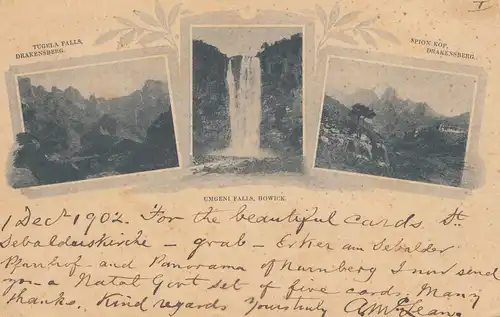 I
TUGELA FALLS,
DRAKENSBERG.
SPION KOP,
DRAKENSBERG.
UMGENI FALLS, HOWICK.
1 Dec^r 1902. For the beautiful cards St.
Sebalduskirche – grab – Erker am Sebalder
Pfarrhof and Panorama of Nurnberg I now send
you a Natal Govt set of five cards. Many
thanks. Kind regards Yours truly A McLean